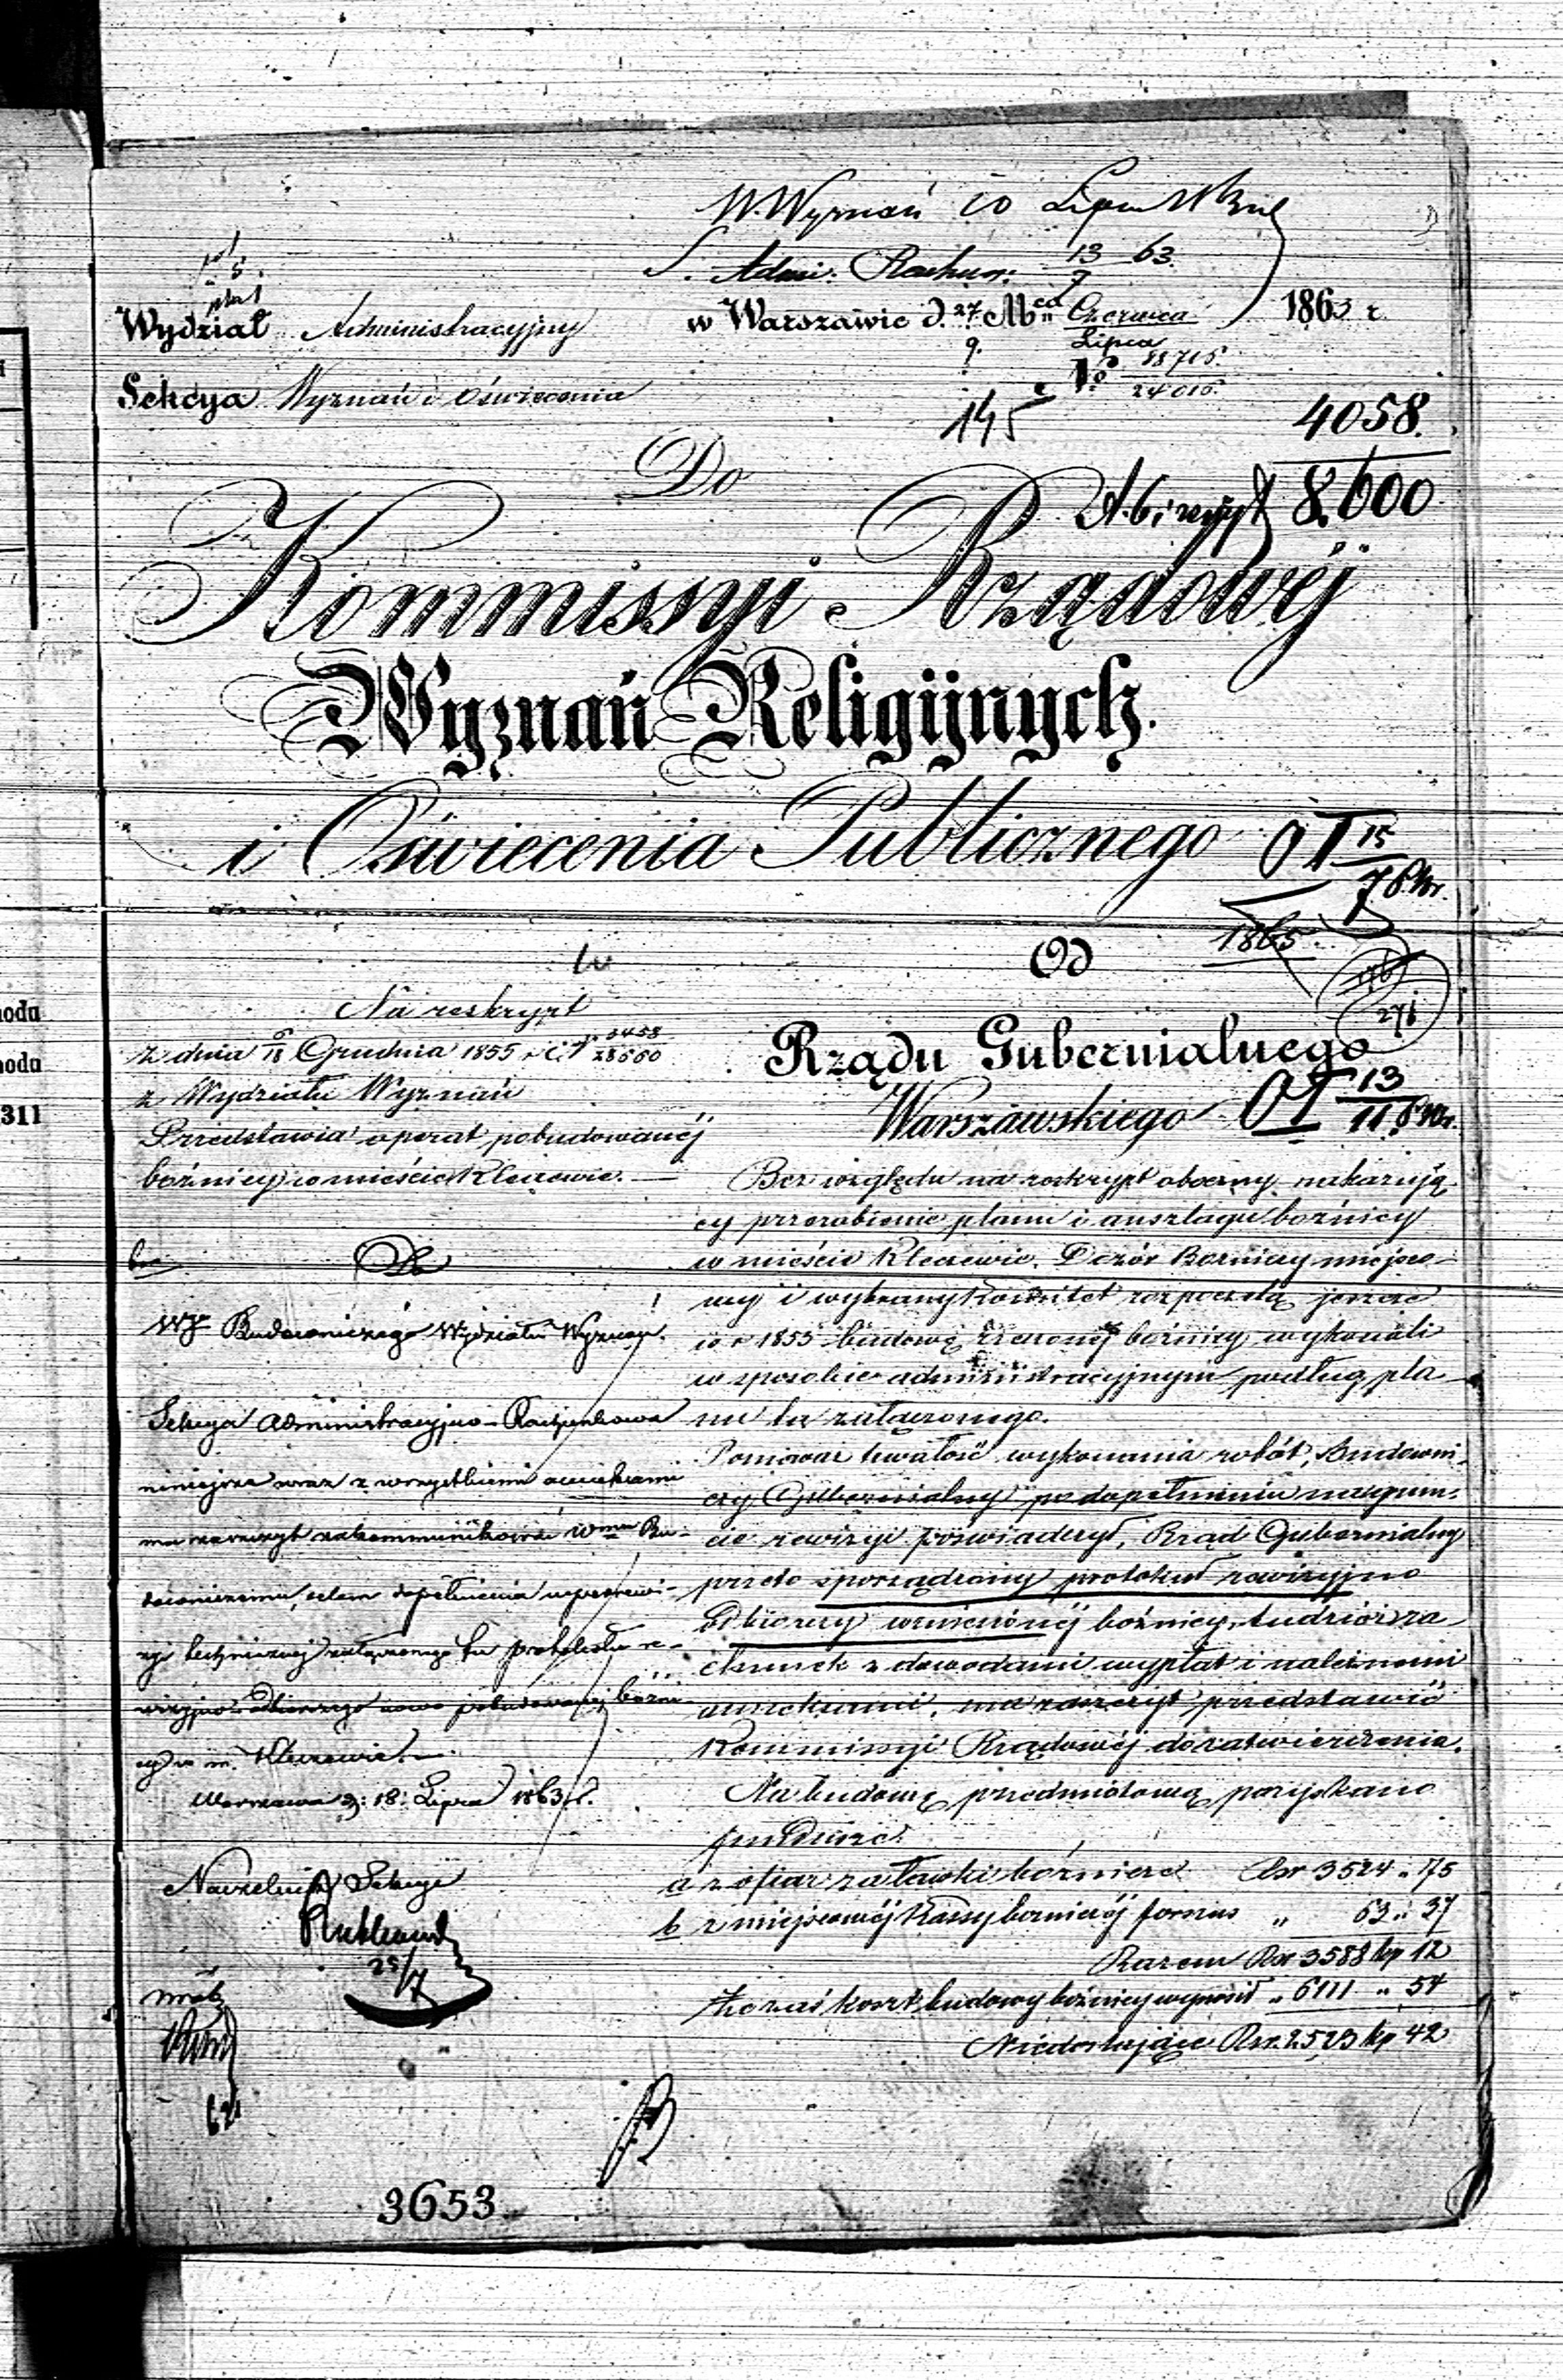 W. Wyznań 10 Lipca
Admi. Rachun. 13/7 63.
Wydział Administracyjny
w Warszawie d. 27/9 Mca Czerwca/Lipca 1863 r.
Sekcya Wyznań i Oświecenia
No 88715/24016
145
4058.
8.600
Do
Kommissyi Rządowéj
Wyznań Religijnych
i Oświecenia Publicznego
15/7
1865.
Od
Rządu Gubernialnego
Warszawskiego
13/11
276
Na reskrypt
z dnia 6/18 Grudnia 1855 r. 5458/28660
z Wydziału Wyznań
Przedstawia operat pobudowanéj
bożnicy w mieście Kleczewie.
Do
WJ Budowniczego Wydziału Wyznań.
Sekcya Administracyjno-Rachunkowa
niniejsze wraz z wszystkiemi anneksami
ma zaszczyt zakommunikować Wmu Bu-
downiczemu, celem dopełnienia superrewi-
zyi technicznéj załączonego tu protokołu re-
wizyjno-odbiorczego nowo pobudowanéj bożni-
cy w m. Kleczewie.
Warszawa d. 18 Lipca 1863 r.
Naczelnik Sekcyi
25/7
Bez względu na reskrypt oboczny nakazują-
cy przerobienie planu i anszlagu bożnicy
w mieście Kleczewie, Dozór Bożniczy miejsco-
wy i wybrany Komitet rozpoczętą jeszcze
w r 1853 budowę rzeczonéj bożnicy wykonali
w sposobie administracyjnym podług pla-
nu tu załączonego.
Ponieważ trwałość wykonania robót, Budowni-
czy Gubernialny po dopełnieniu na grun-
cie rewizyi poświadczył, Rząd Gubernialny
przeto sporządzony protokuł rewizyjno
odbiorczy wznieionéj bożnicy, tudzież ra-
chunek z dowodami wypłat i należnemi
anneksami, ma zaszczyt przedstawić
Kommissyi Rządowéj do zatwierdzenia.
Na budowę przedmiotową pozyskano
fundusze:
a z ofiar za ławki bożnicze Rsr 3524 „ 75
b z miejscowéj Kassy bożniczéj fornus „ 63 „ 37
Razem Rsr 3588 kp 12
że zaś koszt budowy bożnicy wynosił „ 6111 „ 54
Niedostające Rsr. 2523 kp 42
3653